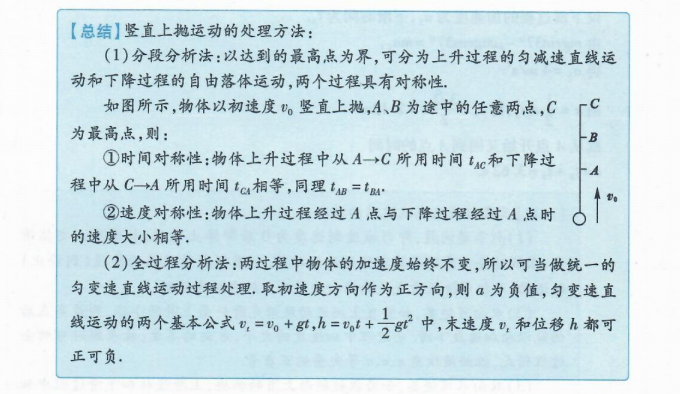 【总结】竖直上抛运动的处理方法：
(1)分段分析法：以达到的最高点为界，可分为上升过程的匀减速直线运
动和下降过程的自由落体运动，两个过程具有对称性.
如图所示，物体以初速度 v₀ 竖直上抛，A、B 为途中的任意两点，C
为最高点，则：
①时间对称性：物体上升过程中从 A→C 所用时间 t_AC 和下降过
程中从 C→A 所用时间 t_CA 相等，同理 t_AB = t_BA.
②速度对称性：物体上升过程经过 A 点与下降过程经过 A 点时
的速度大小相等.
(2)全过程分析法：两过程中物体的加速度始终不变，所以可当做统一的
匀变速直线运动过程处理. 取初速度方向作为正方向，则 a 为负值，匀变速直
线运动的两个基本公式 v_t = v₀ + gt, h = v₀t + 1/2 gt² 中，末速度 v_t 和位移 h 都可
正可负.
C
B
A
v₀